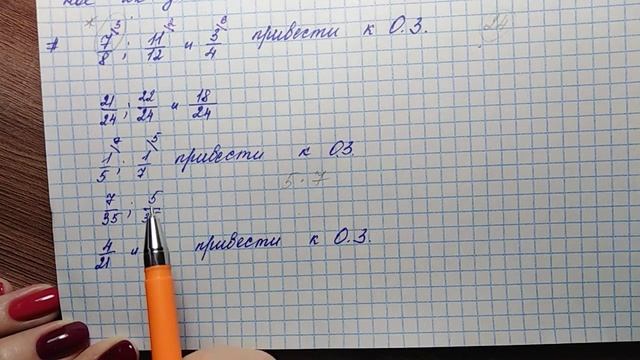 7/8 /3 ; 11/12 /2 и 3/4 /6 привести к О.З. 24
21/24 ; 22/24 и 18/24
1/5 /7 ; 1/7 /5 привести к О.З.
5·7
7/35 ; 5/35
4/21 и привести к О.З.